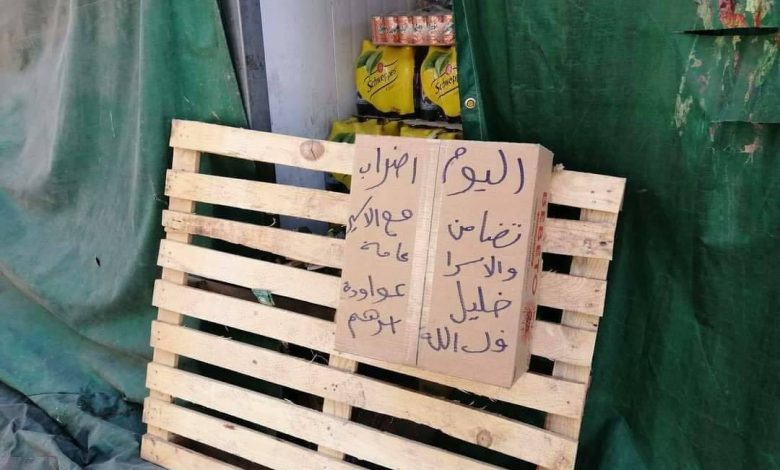 Schweppes
Schweppes
اليوم اضراب
تضامن مع الاسير
والاسرا عامة
خليل عواودة
فك الله اسرهم